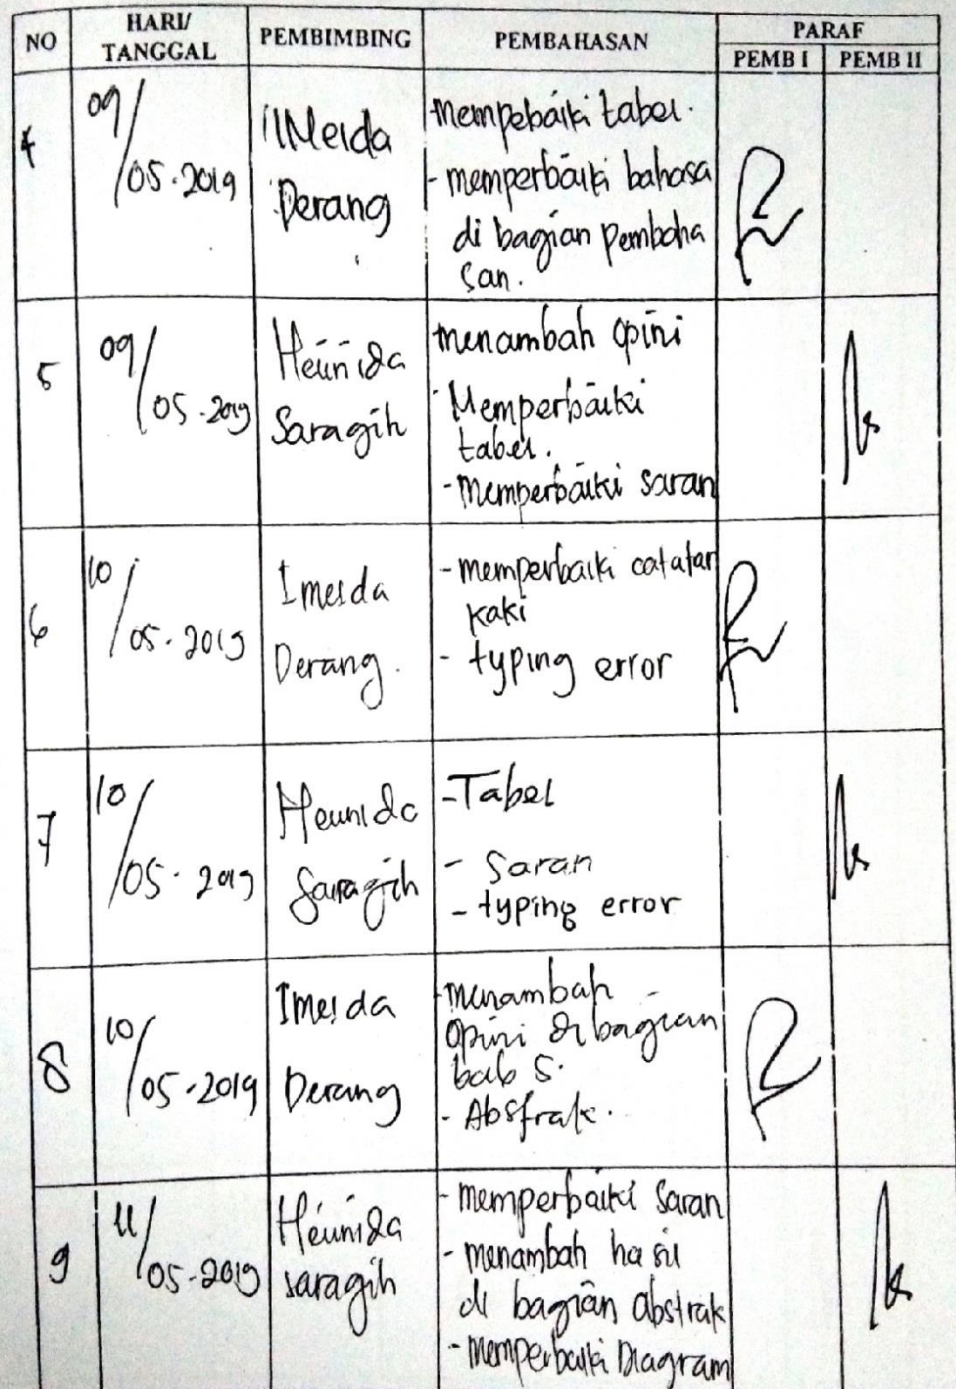 NO HARI/ TANGGAL PEMBIMBING PEMBAHASAN PARAF
PEMB I PEMB II
4 09/05-2019 Imelda Derang
mempebaiki tabel.
- memperbaiki bahasa
di bagian pembaha
san.
5 09/05-2019 Helinida Saragih
menambah opini
- Memperbaiki
tabel.
- memperbaiki saran
6 10/05-2019 Imelda Derang.
- memperbaiki catatan
kaki
- typing error
7 10/05-2019 Helinida Saragih
- Tabel
- Saran
- typing error
8 10/05-2019 Imelda Derang
- menambah
opini di bagian
bab 5.
- Abstrak.
9 11/05-2019 Helinida saragih
- memperbaiki saran
- menambah hasil
di bagian abstrak
- memperbaiki Diagram